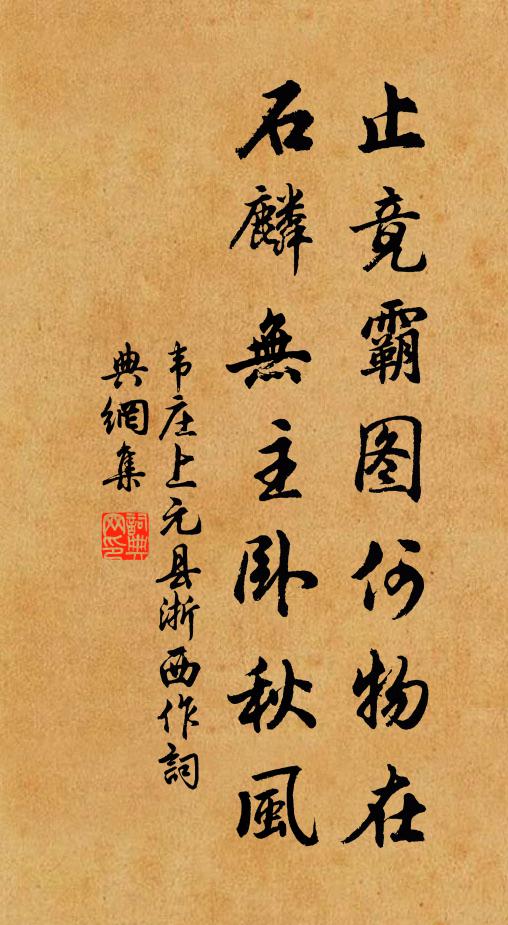 止竟霸图何物在
石麟無主卧秋風
韦庄上元县浙西作詞
典網集
詞典网印